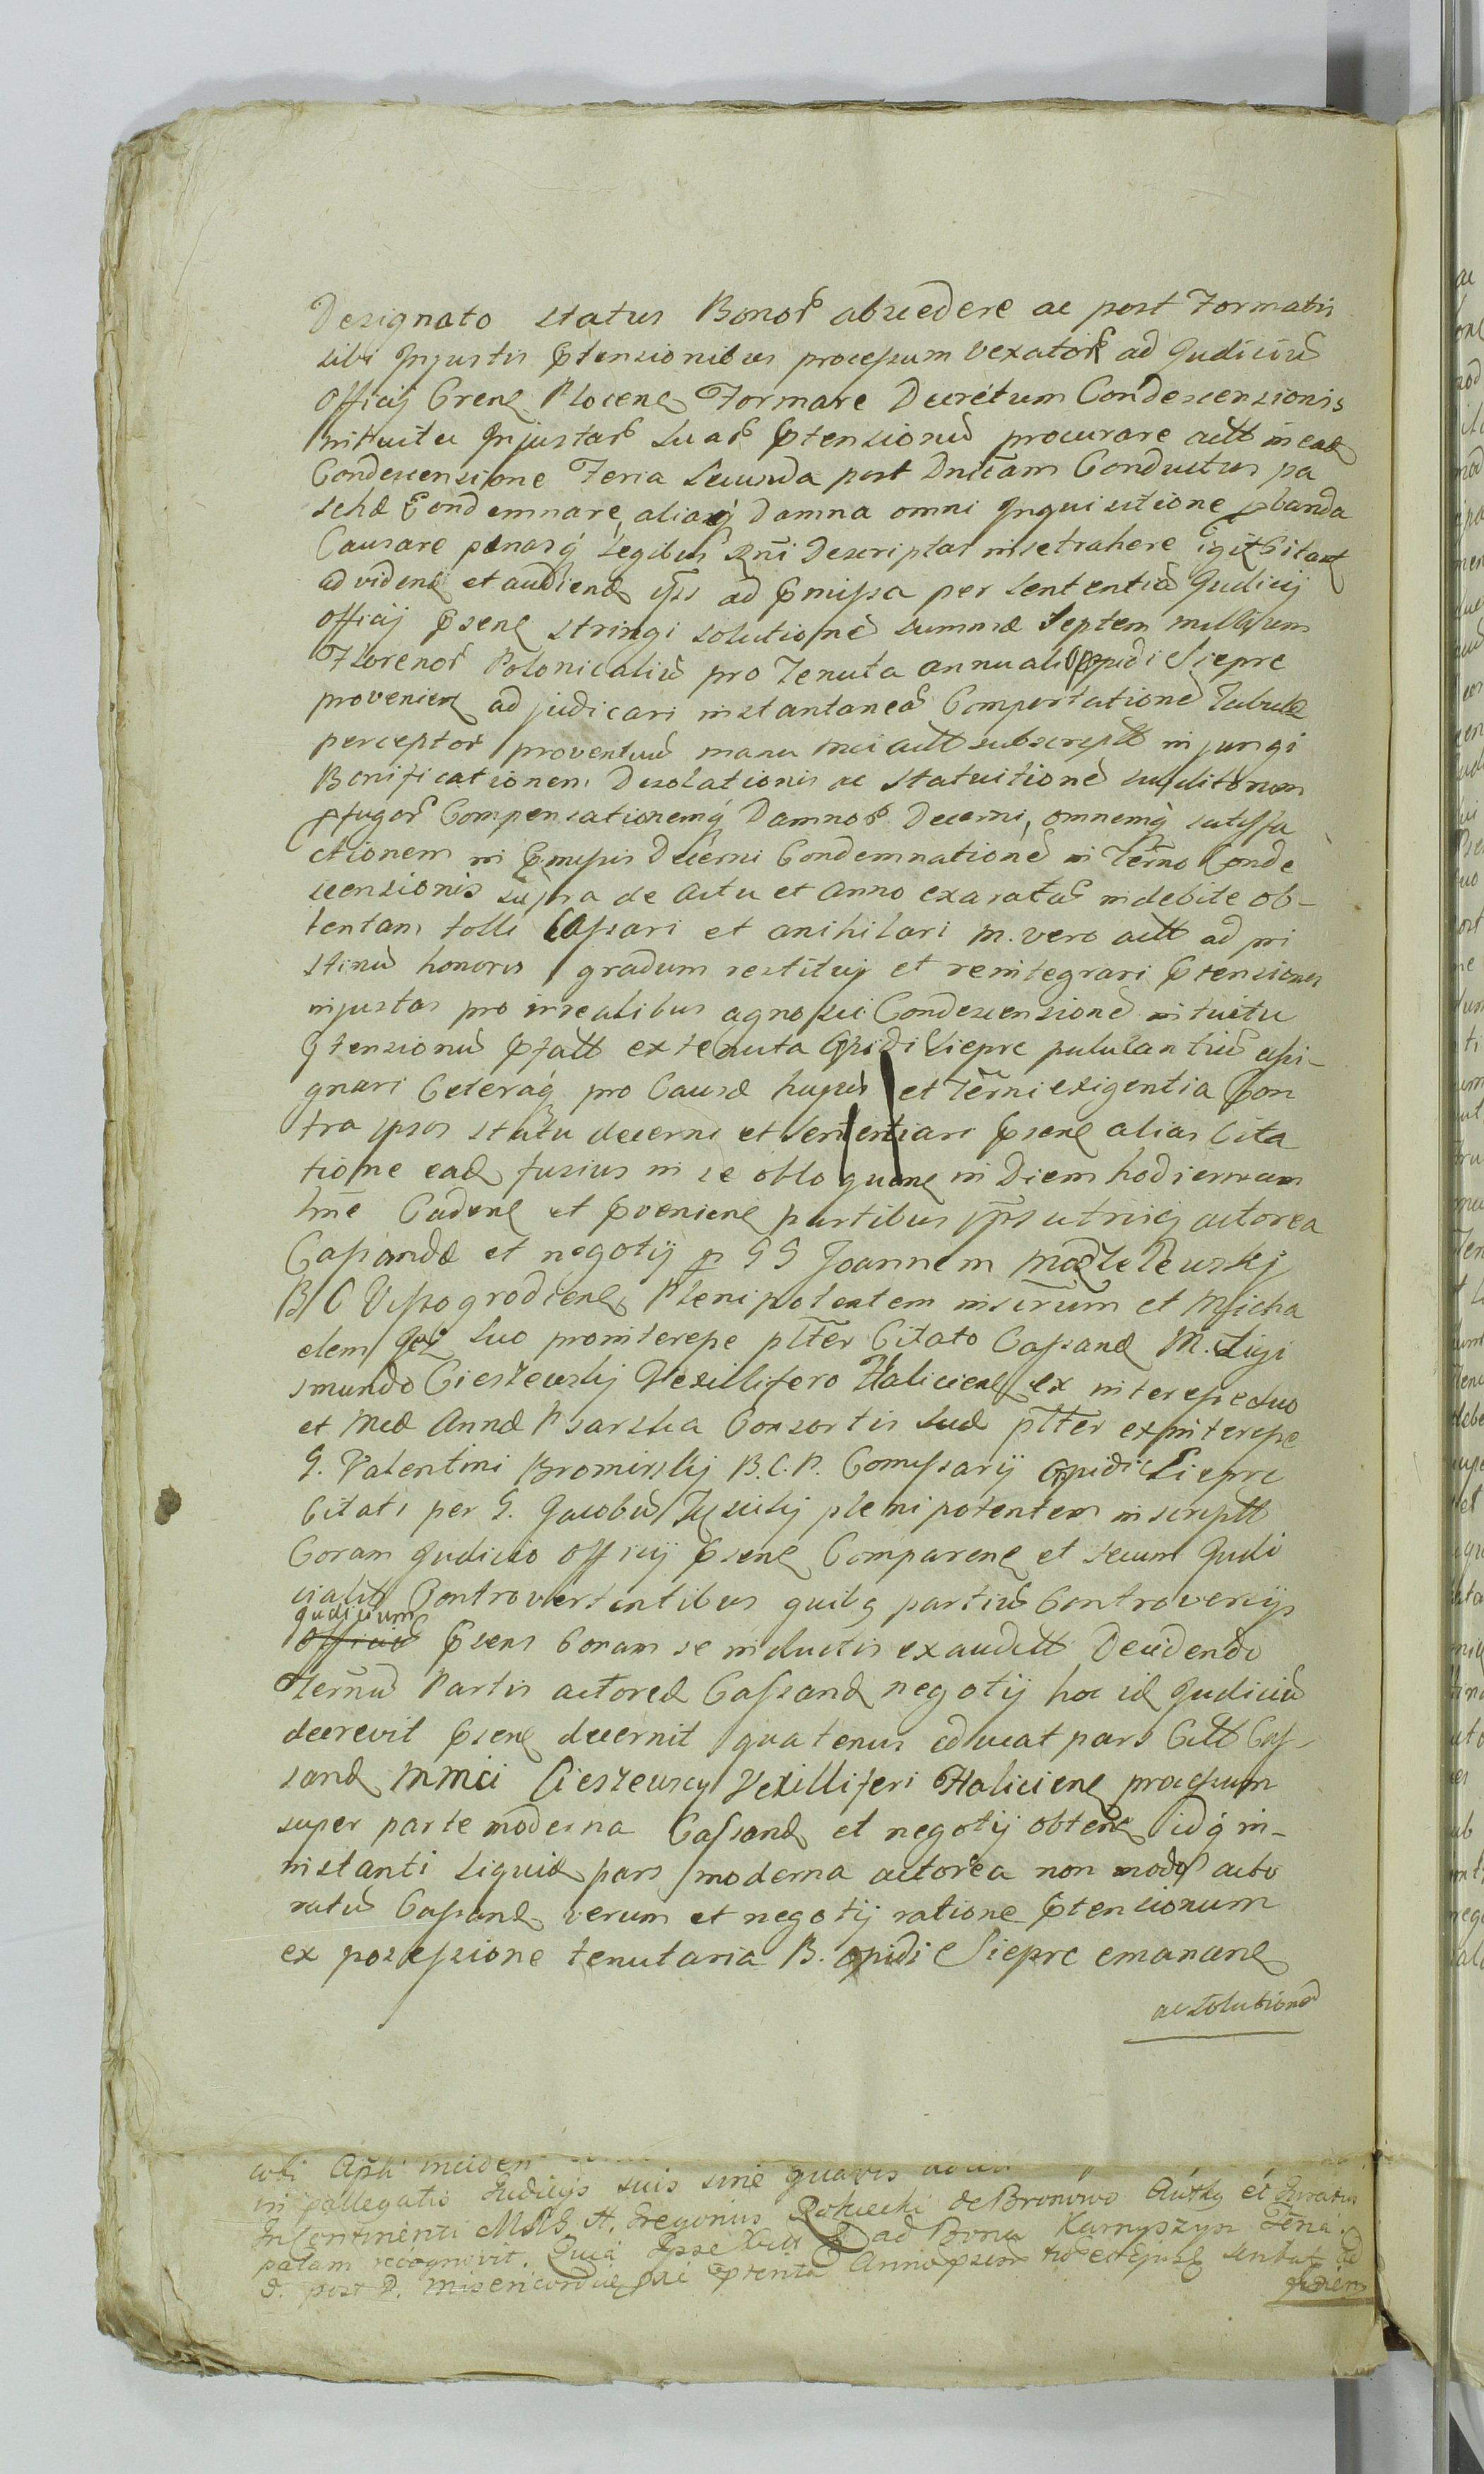 Designato status Bonor abscedere ac post Formatis
sibi Injustis Ptensionibus processum vexator ad Judiciu
Officij Cren Plocen Formare Decretum Condescensionis
intuitu Injustar suar Ptensionu procurare actt in ead
Condescensione Feria Secunda post Dnicam Conductus pa
schæ Condemnare, aliaq Damna omni Inquisitione pbanda
Causare pænasq Legibus Rni Descriptas in se trahere igit Citant
ad viden et audien ipss ad Pmissa per sententia Judicij
Officij Psen stringi solutione summæ septem millium
Florenor Polonicaliu pro Tenuta annuali Oppidi Sieprc
provenien adjudicari instantanea Comportatione Tabulæ
perceptor proventuu manu mci actt subscriptt injungi
Bonificationem Desolationis ac Statuitione subditorum
pfugor Compensationemq Damnor Decerni, omnemq satisfa
ctionem in Pmissis Decerni Condemnatione in Termo Conde
scensionis supra de actu et anno exarata indebite ob-
tentam tolli Cassari et anihilari m. vero actt ad pri
stinu honoris gradum restitui et reintegrari Ptensiones
injustas pro irrealibus agnosci Condescensione intuitu
Ptensionu Pfatt ex tenuta Oppidi Sieprc pululantiu assi-
gnari Ceteraq pro Causæ hujus et Termi exigentia Con
tra ipsos statu decerni et sententiari Psen alias Cita
tione ead fusius in se obloquen in Diem hodiernam
hne Caden et Pvenien partibus ipss utrisq actorea
Cassandæ et negotij p GG Joannem
B C Vissogrodien Plenipotentem inscrum et Micha
elem suo prointeresse pltter Citato Cassand M. Sigi
smundo Cieszewskij Vexillifero Halicien ex interesse suo
et Mcæ Annæ Psarska Consortis suæ pltter ex interesse
G. Valentini Bromirskij B.C.P. Comissarij Oppidi Sieprc
Citati per G. Jacobu plenipotentem inscriptt
Coram Judicio Officij Psen Comparen et secum Judi
cialit Controvertentibus quibq partiu Controversijs
Judicium
Officiu Psens Coram se inductis exauditt Decidendo
Termu Partis actoreæ Cassand negotij hoc id Judiciu
decrevit Psen decernit quatenus educat pars Citt Cas-
sand MMci Cieszewscy Vexilliferi Halicien processum
super parte moderna Cassand et negotij obten idq in-
instanti siquid pars moderna actorea non modo acto
ratu Cassand verum et negotij ratione Ptensionum
ex possessione tenutaria B. Oppidi Sieprc emanan
ac solutione
cobi Apli inciden
in pallegatis Judicijs suis sine quavis
Incontinenti MNG A. Gregorius Rokicki de Bronowo
palam recognovit. Quia Ipse ad Bona Karnyszyn
post D. Misericordiæ